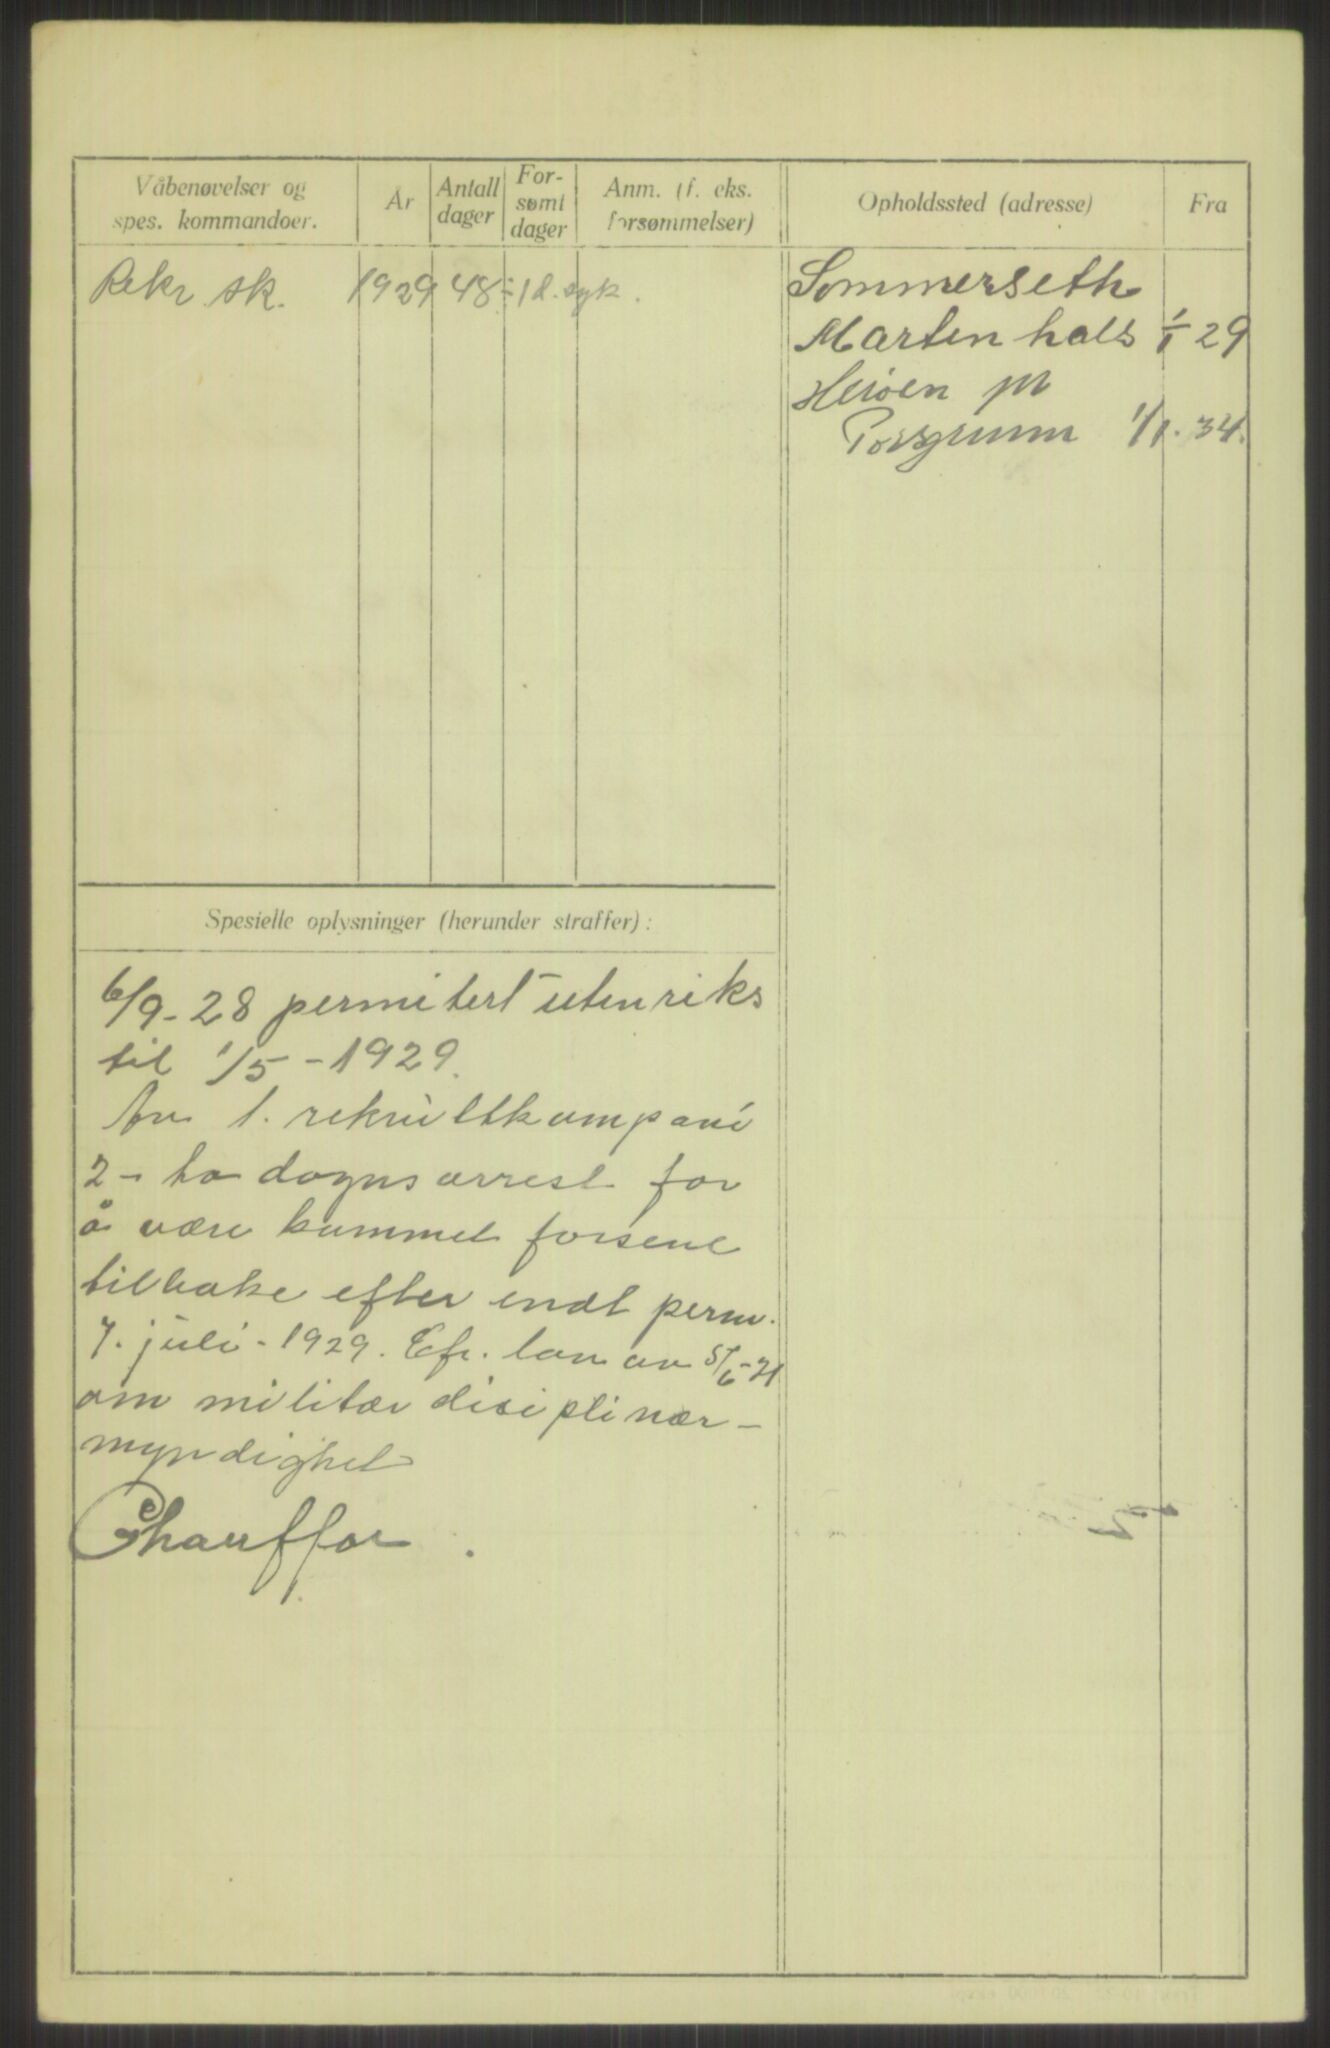 Våbenøvelser og
spes. kommandoer.
År
Antall
dager
For-
sømt
dager
Anm. (f. eks.
forsømmelser)
Opholdssted (adresse)
Fra
Rekr. sk. 1929 48 ÷ 1 d. syk.
Sommerseth
Marten hals 1/1 29
Herøen pr
Porsgrunn 1/1. 34.
Spesielle oplysninger (herunder straffer):
6/9-28 permitert utenriks
til 1/5-1929.
Av 1. rekruttkompani
2- to døgns arrest for
å være kommet forsent
tilbake efter endt perm.
7. juli-1929. Cfr. lov av 5/6-21
om militær disciplinær-
myndighet
Chauffør.